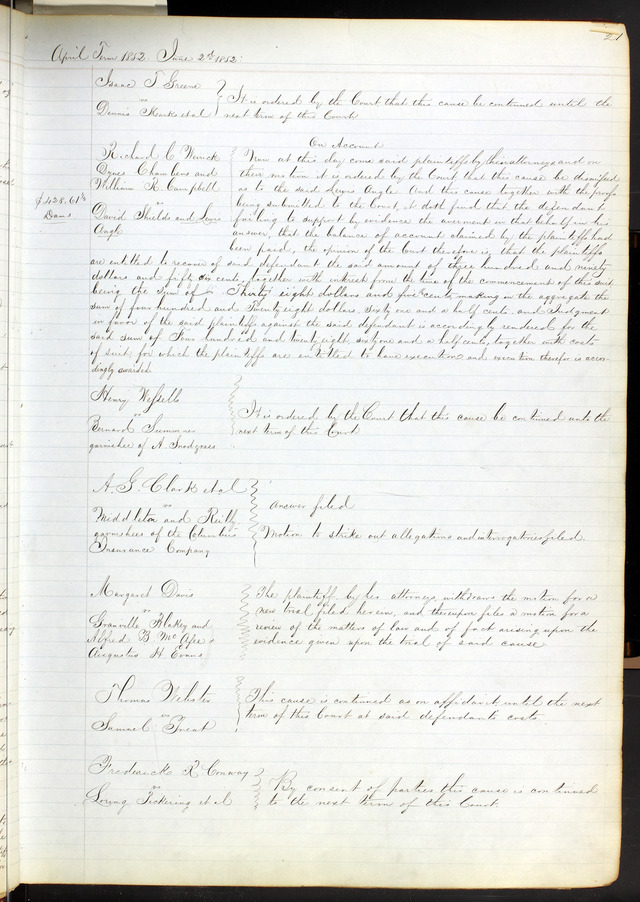 21
April Term 1852 June 2d 1852.
Isaac T Greene
vs
Dennis et al
It is ordered by the Court that this cause be continued until the
next term of this Court
On Account
Richard C
Dynes Chambers and
William R. Campbell
vs
David Shields and Lewis
Angle
$428.61½
Dams
Now at this day come said plaintiffs by their attorneys and on
their motion it is ordered by the Court that this cause be dismissed
as to the said Lewis Angle And this cause together with the proofs
being submitted to the Court, it doth find that the defendants
failing to support by evidence the averment in that behalf in his
answer, that the balance of account claimed by the plaintiffs had
been paid, the opinion of the Court therefore is, that the plaintiffs
are entitled to recover of said defendant the said amount of three hundred and ninety
dollars and fifty six cents, together with interest from the time of the commencement of this suit
being the sum of Thirty eight dollars and five cents making in the aggregate the
sum of four hundred and Twenty eight dollars sixty one and a half cents. and Judgment
in favor of the said plaintiffs against the said defendant is accordingly rendered for the
said sum of Four hundred and twenty eight sixty one and a half cents, together with costs
of suit, for which the plaintiffs are entitled to have execution and execution therefor is accor-
dingly awarded
Henry
vs
Bernard Summer
garnishee of A. Snodgrass
It is ordered by the Court that this cause be continued until the
next term of this Court
A. G. Clark et al
vs
Middleton and Reilly
garnishees of the Columbus
Insurance Company
Answer filed
Motion to strike out allegations and interrogatories filed.
Margaret Davis
vs
Granville Blakey and
Alfred B McAfee &
Augustus H. Evans
The plaintiff by her attorneys, withdraws the motion for a
new trial filed herein, and thereupon files a motion for a
review of the matters of law and of fact arising upon the
evidence given upon the trial of said cause
Thomas Webster
vs
Samuel Treat
This cause is continued as on affidavit until the next
term of this Court at said defendants costs.
Frederick R Conway
vs
Loring Pickering et al
By consent of parties this cause is continued
to the next term of this Court